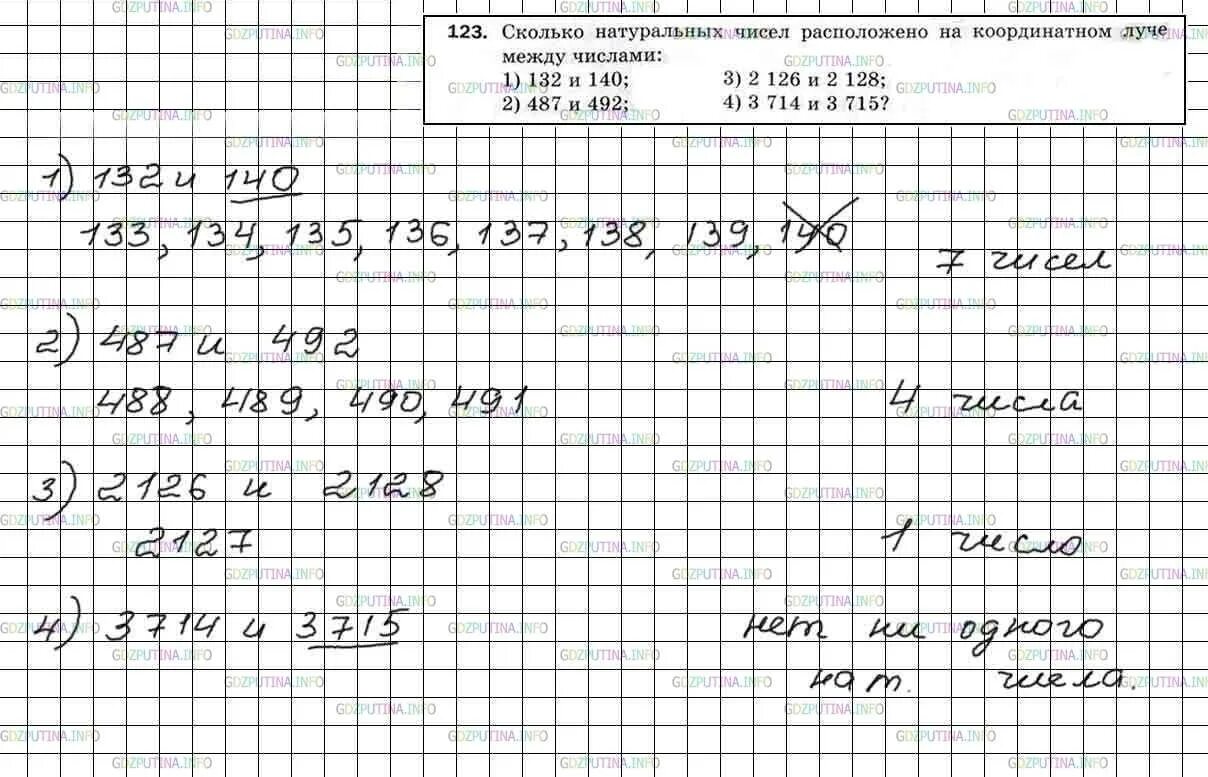 123. Сколько натуральных чисел расположено на координатном луче
между числами:
1) 132 и 140; 3) 2 126 и 2 128;
2) 487 и 492; 4) 3 714 и 3 715?
1) 132 и 140
133, 134, 135, 136, 137, 138, 139, 140
7 чисел
2) 487 и 492
488, 489, 490, 491 4 числа
3) 2126 и 2128
2127 1 число
4) 3714 и 3715 нет ни одного
нат. числа.
GDZPUTINA.INFO